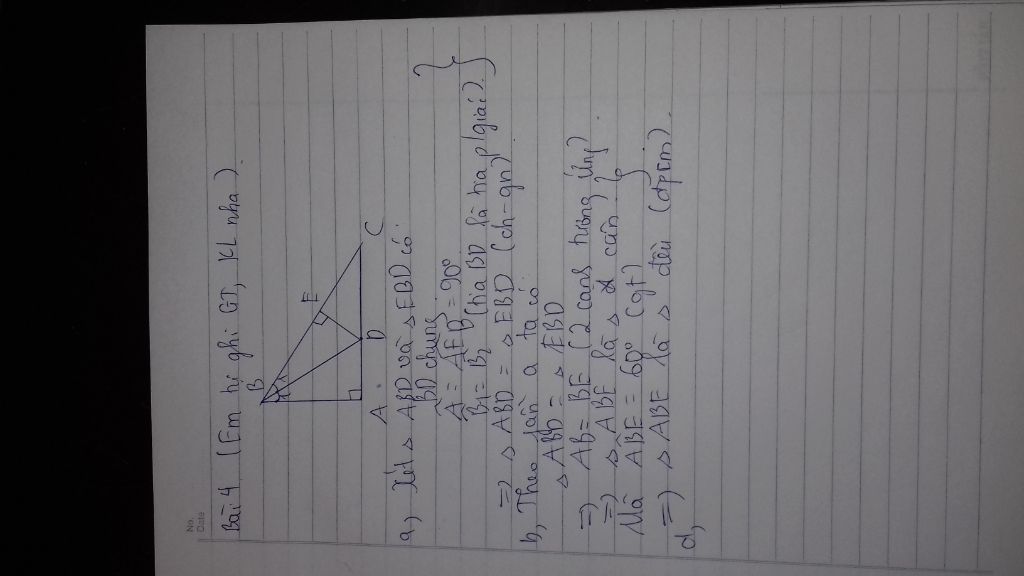 No.
Date
Bài 4 (Em tự ghi GT, KL nha)
B
E
A D C
a, Xét △ ABD và △ EBD có
BD chung
Â = AEB = 90°
B1 = B2 (tia BD là tia p/giác)
=> △ ABD = △ EBD (ch-gn)
b, Theo phần a ta có
△ ABD = △ EBD
=> AB = BE (2 cạnh tương ứng)
=> △ ABE là △ cân
Mà ABE = 60° (gt)
=> △ ABE là △ đều (đpcm).
d,